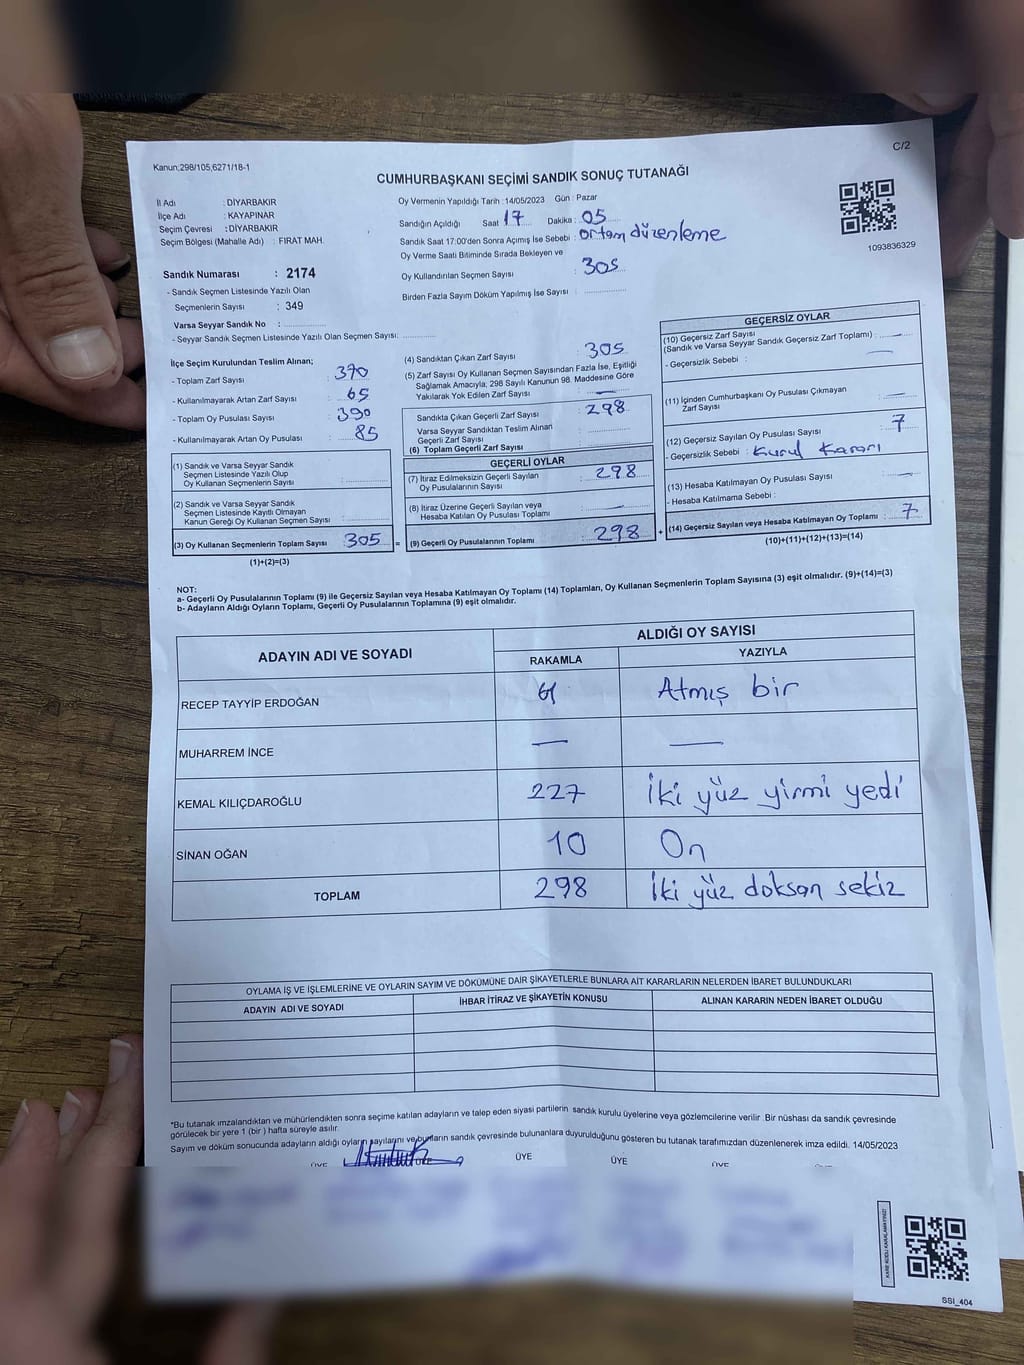 Kanun;298/105,6271/18-1
C/2
CUMHURBAŞKANI SEÇİMİ SANDIK SONUÇ TUTANAĞI
İl Adı : DİYARBAKIR
İlçe Adı : KAYAPINAR
Seçim Çevresi : DİYARBAKIR
Seçim Bölgesi (Mahalle Adı) : FIRAT MAH.
Sandık Numarası : 2174
- Sandık Seçmen Listesinde Yazılı Olan
Seçmenlerin Sayısı : 349
Varsa Seyyar Sandık No :
- Seyyar Sandık Seçmen Listesinde Yazılı Olan Seçmen Sayısı:
Oy Vermenin Yapıldığı Tarih : 14/05/2023 Gün : Pazar
Sandığın Açıldığı Saat 17 Dakika : 05
Sandık Saat 17:00'den Sonra Açımış İse Sebebi : Ortam düzenleme
Oy Verme Saati Bitiminde Sırada Bekleyen ve
Oy Kullandırılan Seçmen Sayısı : 305
Birden Fazla Sayım Döküm Yapılmış İse Sayısı :
1093836329
İlçe Seçim Kurulundan Teslim Alınan;
- Toplam Zarf Sayısı : 370
- Kullanılmayarak Artan Zarf Sayısı : 65
- Toplam Oy Pusulası Sayısı : 390
- Kullanılmayarak Artan Oy Pusulası : 85
(1) Sandık ve Varsa Seyyar Sandık
Seçmen Listesinde Yazılı Olup
Oy Kullanan Seçmenlerin Sayısı :
(2) Sandık ve Varsa Seyyar Sandık
Seçmen Listesinde Kayıtlı Olmayan
Kanun Gereği Oy Kullanan Seçmen Sayısı :
(3) Oy Kullanan Seçmenlerin Toplam Sayısı 305 =
(1)+(2)=(3)
(4) Sandıktan Çıkan Zarf Sayısı : 305
(5) Zarf Sayısı Oy Kullanan Seçmen Sayısından Fazla İse, Eşitliği
Sağlamak Amacıyla; 298 Sayılı Kanunun 98. Maddesine Göre
Yakılarak Yok Edilen Zarf Sayısı : —
Sandıkta Çıkan Geçerli Zarf Sayısı : 298
Varsa Seyyar Sandıktan Teslim Alınan
Geçerli Zarf Sayısı :
(6) Toplam Geçerli Zarf Sayısı
GEÇERLİ OYLAR
(7) İtiraz Edilmeksizin Geçerli Sayılan
Oy Pusulalarının Sayısı : 298
(8) İtiraz Üzerine Geçerli Sayılan veya
Hesaba Katılan Oy Pusulası Toplamı : —
(9) Geçerli Oy Pusulalarının Toplamı : 298 +
GEÇERSİZ OYLAR
(10) Geçersiz Zarf Sayısı
(Sandık ve Varsa Seyyar Sandık Geçersiz Zarf Toplamı) : —
- Geçersizlik Sebebi : —
(11) İçinden Cumhurbaşkanı Oy Pusulası Çıkmayan
Zarf Sayısı : —
(12) Geçersiz Sayılan Oy Pusulası Sayısı : 7
- Geçersizlik Sebebi : Kurul Kararı
(13) Hesaba Katılmayan Oy Pusulası Sayısı : —
- Hesaba Katılmama Sebebi :
(14) Geçersiz Sayılan veya Hesaba Katılmayan Oy Toplamı : 7
(10)+(11)+(12)+(13)=(14)
NOT:
a- Geçerli Oy Pusulalarının Toplamı (9) ile Geçersiz Sayılan veya Hesaba Katılmayan Oy Toplamı (14) Toplamları, Oy Kullanan Seçmenlerin Toplam Sayısına (3) eşit olmalıdır. (9)+(14)=(3)
b- Adayların Aldığı Oyların Toplamı, Geçerli Oy Pusulalarının Toplamına (9) eşit olmalıdır.
ADAYIN ADI VE SOYADI
ALDIĞI OY SAYISI
RAKAMLA YAZIYLA
RECEP TAYYİP ERDOĞAN 61 Atmış bir
MUHARREM İNCE — —
KEMAL KILIÇDAROĞLU 227 İki yüz yirmi yedi
SİNAN OĞAN 10 On
TOPLAM 298 İki yüz doksan sekiz
OYLAMA İŞ VE İŞLEMLERİNE VE OYLARIN SAYIM VE DÖKÜMÜNE DAİR ŞİKAYETLERLE BUNLARA AİT KARARLARIN NELERDEN İBARET BULUNDUKLARI
ADAYIN ADI VE SOYADI İHBAR İTİRAZ VE ŞİKAYETİN KONUSU ALINAN KARARIN NEDEN İBARET OLDUĞU
*Bu tutanak imzalandıktan ve mühürlendikten sonra seçime katılan adayların ve talep eden siyasi partilerin sandık kurulu üyelerine veya gözlemcilerine verilir .Bir nüshası da sandık çevresinde
görülecek bir yere 1 (bir ) hafta süreyle asılır.
Sayım ve döküm sonucunda adayların aldığı oyların sayılarını ve bunların sandık çevresinde bulunanlara duyurulduğunu gösteren bu tutanak tarafımızdan düzenlenerek imza edildi. 14/05/2023
ÜYE ÜYE ÜYE ÜYE ÜYE
KARE KODU KARALAMAYINIZ!
SSI_404